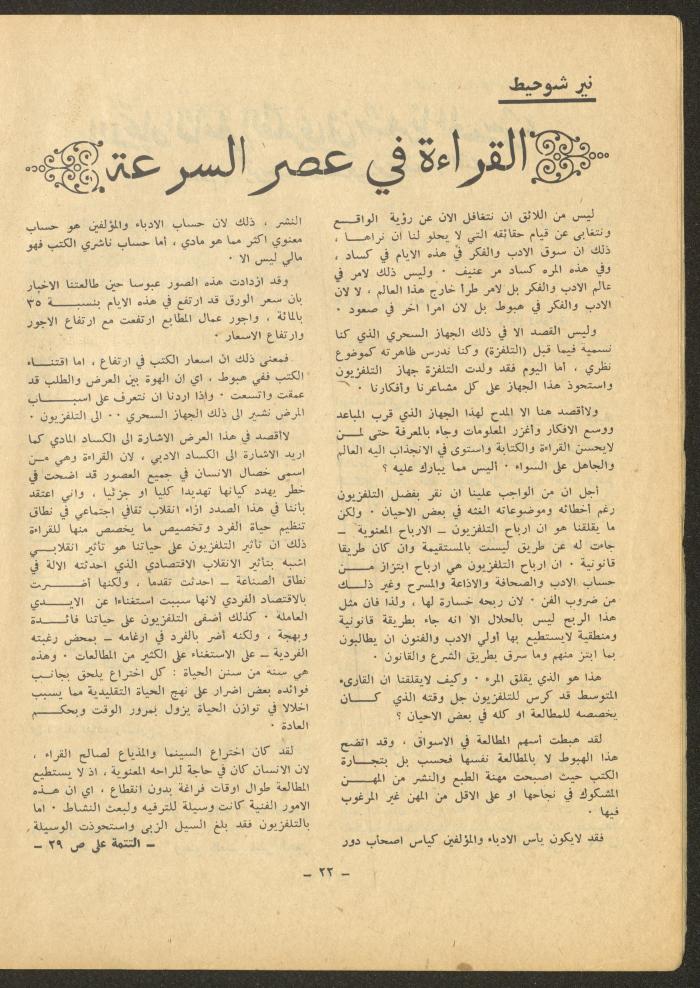 نير شوحيط
القراءة في عصر السرعة
ليس من اللائق ان نتغافل الان عن رؤية الواقـــع
ونتغابى عن قيام حقائقه التي لا يحلو لنا ان نراهـا ،
ذلك ان سوق الادب والفكر في هذه الايام في كساد ،
وفي هذه المره كساد مر عنيف ٠ وليس ذلك لامر في
عالم الادب والفكر بل لامر طرأ خارج هذا العالم ، لا لان
الادب والفكر في هبوط بل لان امرا اخر في صعود ٠
وليس القصد الا في ذلك الجهاز السحري الذي كنا
نسميه فيما قبل (التلفزة) وكنا ندرس ظاهرته كموضوع
نظري ، أما اليوم فقد ولدت التلفزة جهاز التلفزيون
واستحوذ هذا الجهاز على كل مشاعرنا وأفكارنا ٠
ولاأقصد هنا الا المدح لهذا الجهاز الذي قرب المباعد
ووسع الافكار وأغزر المعلومات وجاء بالمعرفة حتى لمـــن
لايحسن القراءة والكتابة واستوى في الانجذاب اليه العالم
والجاهل على السواء ٠ أليس مما يبارك عليه ؟
أجل ان من الواجب علينا ان نقر بفضل التلفزيون
رغم أخطائه وموضوعاته الغثه في بعض الاحيان ٠ ولكن
ما يقلقنا هو ان ارباح التلفزيون ــ الارباح المعنوية ــ
جاءت له عن طريق ليست بالمستقيمة وان كان طريقا
قانونية ٠ ان ارباح التلفزيون هي ارباح ابتزاز مـــن
حساب الادب والصحافة والاذاعة والمسرح وغير ذلــك
من ضروب الفن ٠ لان ربحه خسارة لها ، ولذا فان مثل
هذا الربح ليس بالحلال الا انه جاء بطريقة قانونية
ومنطقية لايستطيع بها أولي الادب والفنون ان يطالبون
بما ابتز منهم وما سرق بطريق الشرع والقانون ٠
هذا هو الذي يقلق المرء ٠ وكيف لايقلقنا ان القارىء
المتوسط قد كرس للتلفزيون جل وقته الذي كـــان
يخصصه للمطالعة او كله في بعض الاحيان ؟
لقد هبطت أسهم المطالعة في الاسواق ، وقد اتضح
هذا الهبوط لا بالمطالعة نفسها فحسب بل بتجـــارة
الكتب حيث اصبحت مهنة الطبع والنشر من المهـــن
المشكوك في نجاحها او على الاقل من المهن غير المرغوب
فيها ٠
فقد لايكون يأس الادباء والمؤلفين كياس اصحأب دور
النشر ، ذلك لان حساب الادباء والمؤلفين هو حساب
معنوي اكثر مما هو مادي ، أما حساب ناشري الكتب فهو
مالي ليس الا ٠
وقد ازدادت هذه الصور عبوسا حين طالعتنا الاخبار
بان سعر الورق قد ارتفع في هذه الايام بنسبـــة ٣٥
بالمائة ، واجور عمال المطابع ارتفعت مع ارتفاع الاجور
وارتفاع الاسعار ٠
فمعنى ذلك ان اسعار الكتب في ارتفاع ، اما اقتنـاء
الكتب ففي هبوط ، اي ان الهوة بين العرض والطلب قد
عمقت واتسعت ٠ واذا اردنا ان نتعرف على اسبـــاب
المرض نشير الى ذلك الجهاز السحري ٠٠ الى التلفزيون ٠
لاأقصد في هذا العرض الاشارة الى الكساد المادي كما
اريد الاشارة الى الكساد الادبي ، لان القراءة وهي مـن
اسمى خصال الانسان في جميع العصور قد اضحت في
خطر يهدد كيانها تهديدا كليا او جزئيا ، واني اعتقد
بأننا في هذا الصدد ازاء انقلاب ثقافي اجتماعي في نطاق
تنظيم حياة الفرد وتخصيص ما يخصص منها للقراءة
ذلك ان تأثير التلفزيون على حياتنا هو تأثير انقلابــي
اشبه بتأثير الانقلاب الاقتصادي الذي احدثته الالة في
نطاق الصناعة ــ احدثت تقدما ، ولكنها أضـــرت
بالاقتصاد الفردي لانها سببت استغناءا عن الايـــدي
العاملة ٠ كذلك أضفى التلفزيون على حياتنا فائـــدة
وبهجة ، ولكنه أضر بالفرد في ارغامه ــ بمحض رغبته
الفردية ــ على الاستغناء على الكثير من المطالعات ٠ وهذه
هي سنة من سنن الحياة : كل اختراع يلحق بجانـب
فوائده بعض اضرار على نهج الحياة التقليدية مما يسبب
اخلالا في توازن الحياة يزول بمرور الوقت وبحكـــم
العادة ٠
لقد كان اختراع السينما والمذياع لصالح القراء ،
لان الانسان كان في حاجة للراحه المعنوية ، اذ لا يستطيع
المطالعة طوال اوقات فراغة بدون انقطاع ، اي ان هــذه
الامور الفنية كانت وسيلة للترفيه ولبعث النشاط ٠ اما
بالتلفزيون فقد بلغ السيل الزبى واستحوذت الوسيلة
ــ التتمة على ص ٢٩ ــ
ــ ٢٢ ــ